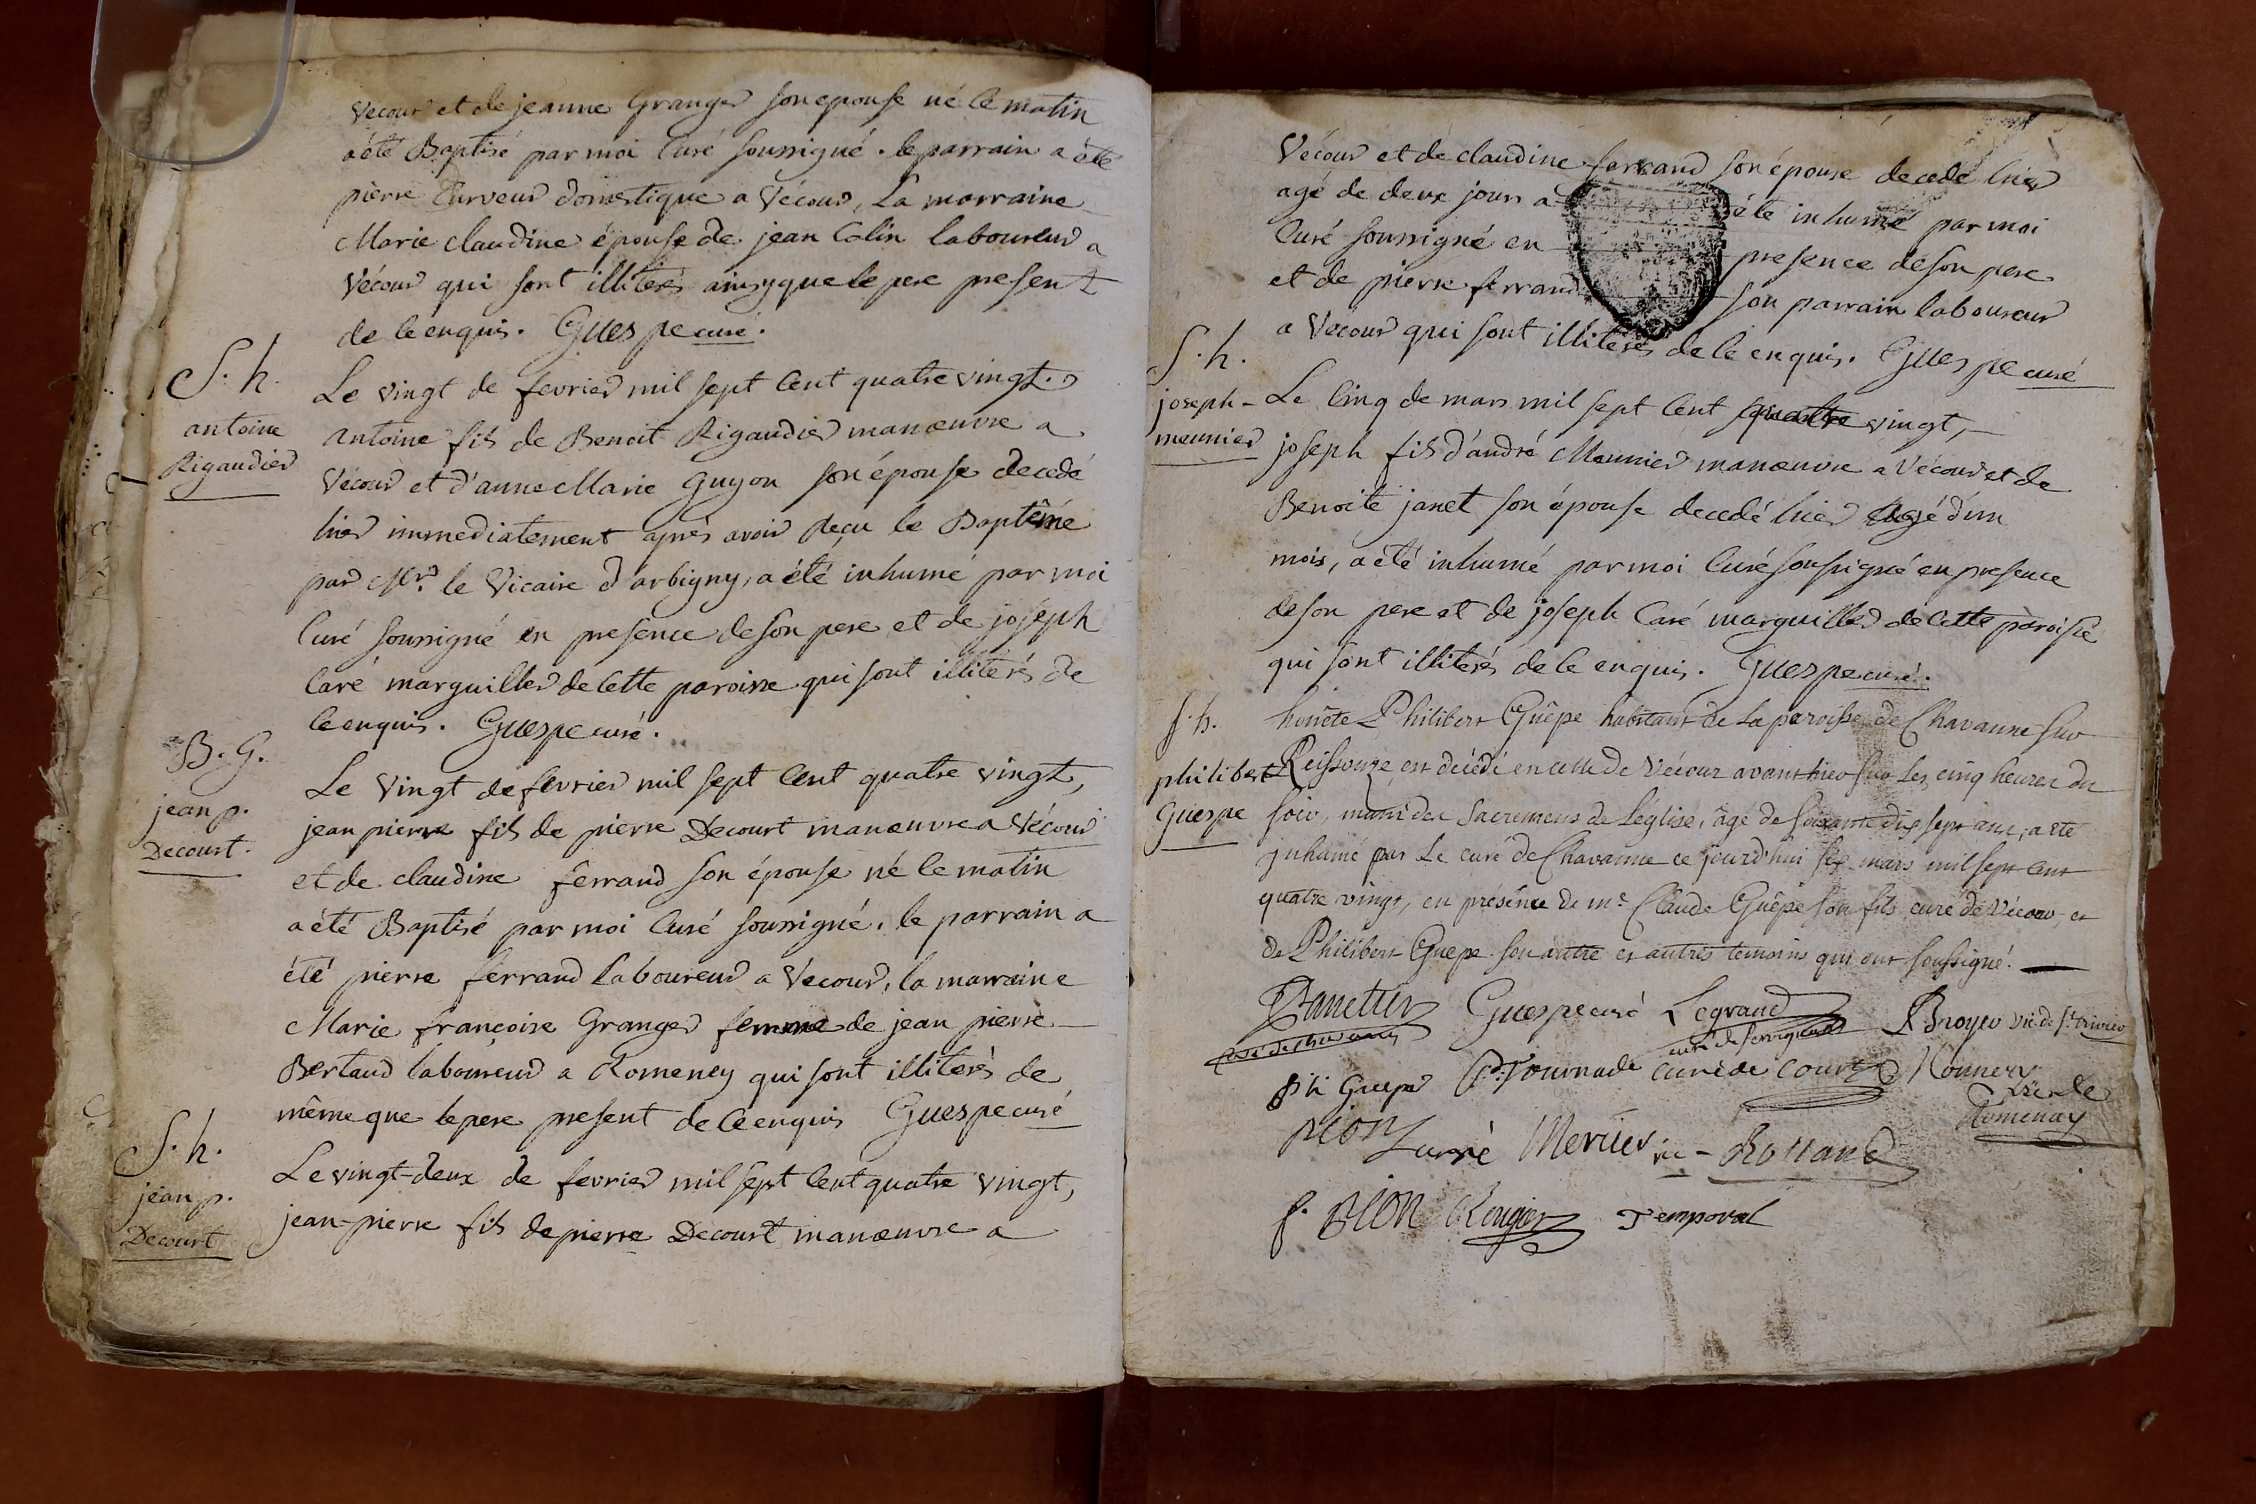 vecour et de jeanne Granger son epouse né le matin
a été Baptisé par moi Curé soussigné. le parrain a été
pierre Curveur domestique a Vécour, La marraine
Marie claudine épouse de jean Colin laboureur a
Vécour qui sont illiterés ainsy que le pere present
de ce enquis. Guespe curé.
S. h.
antoine
Rigaudier
Le vingt de fevrier mil sept Cent quatre vingt.
antoine fils de Benoit Rigaudier manœuvre a
Vécour et d'anne Marie Guyon son épouse decedé
hier immediatement après avoir reçu le Baptême
par Mr. le Vicaire d'arbigny, a été inhumé par moi
Curé soussigné en presence de son pere et de joseph
Caré marguiller de Cette paroisse qui sont illiterés de
ce enquis. Guespe curé.
B. G.
jean p.
Decourt.
Le Vingt de fevrier mil sept Cent quatre vingt,
jean pierre fils de pierre Decourt manœuvre a Vécour
et de claudine ferrand son épouse né le matin
a été Baptisé par moi Curé soussigné. le parrain a
été pierre ferrand laboureur a Vecour, la marraine
Marie françoise Granger femme de jean pierre
Bertaud laboureur a Romeney qui sont illiterés de
même que le pere present de ce enquis Guespe curé
S. h.
jean p.
Decourt
Le vingt-deux de fevrier mil sept Cent quatre vingt,
jean-pierre fils de pierre Decourt manœuvre a
Vécour et de claudine ferrand son épouse decedé hier
agé de deux jours a été inhumé par moi
Curé soussigné en presence de son pere
et de pierre ferrand son parrain laboureur
a Vecour qui sont illiterés de ce enquis. Guespe curé
S. h.
joseph
meunier
Le Cinq de mars mil sept Cent quatre vingt,
joseph fils d'andré Meunier manœuvre a Vécour et de
Benoite janet son épouse decedé hier agé d'un
mois, a été inhumé par moi Curé soussigné en presence
de son pere et de joseph Caré marguiller de Cette paroisse
qui sont illiterés de ce enquis. Guespe curé.
S. h.
philibert
Guespe
honête Philibert Guêpe habitant de la paroisse de Chavanne sur
Reissouze est décédé en celle de Vécour avant hier sur les cinq heures du
soir, muni des Sacremens de l'église, âgé de soixante dix sept ans, a été
inhumé par Le curé de Chavanne ce jourd'hui six mars mil sept cent
quatre vingt, en présence de me Claude Guêpe son fils curé de Vécour, et
de Philibert Guêpe son autre et autres temoins qui ont soussigné.
Guespe curé Legrand Broyer vic. de St trivier
curé de chavannes
phi Guepe Tournade curé de Cour Monnery
vic de
Romenay
PION curé Mercier vic - Rolland
f. PION Rougier Temporal